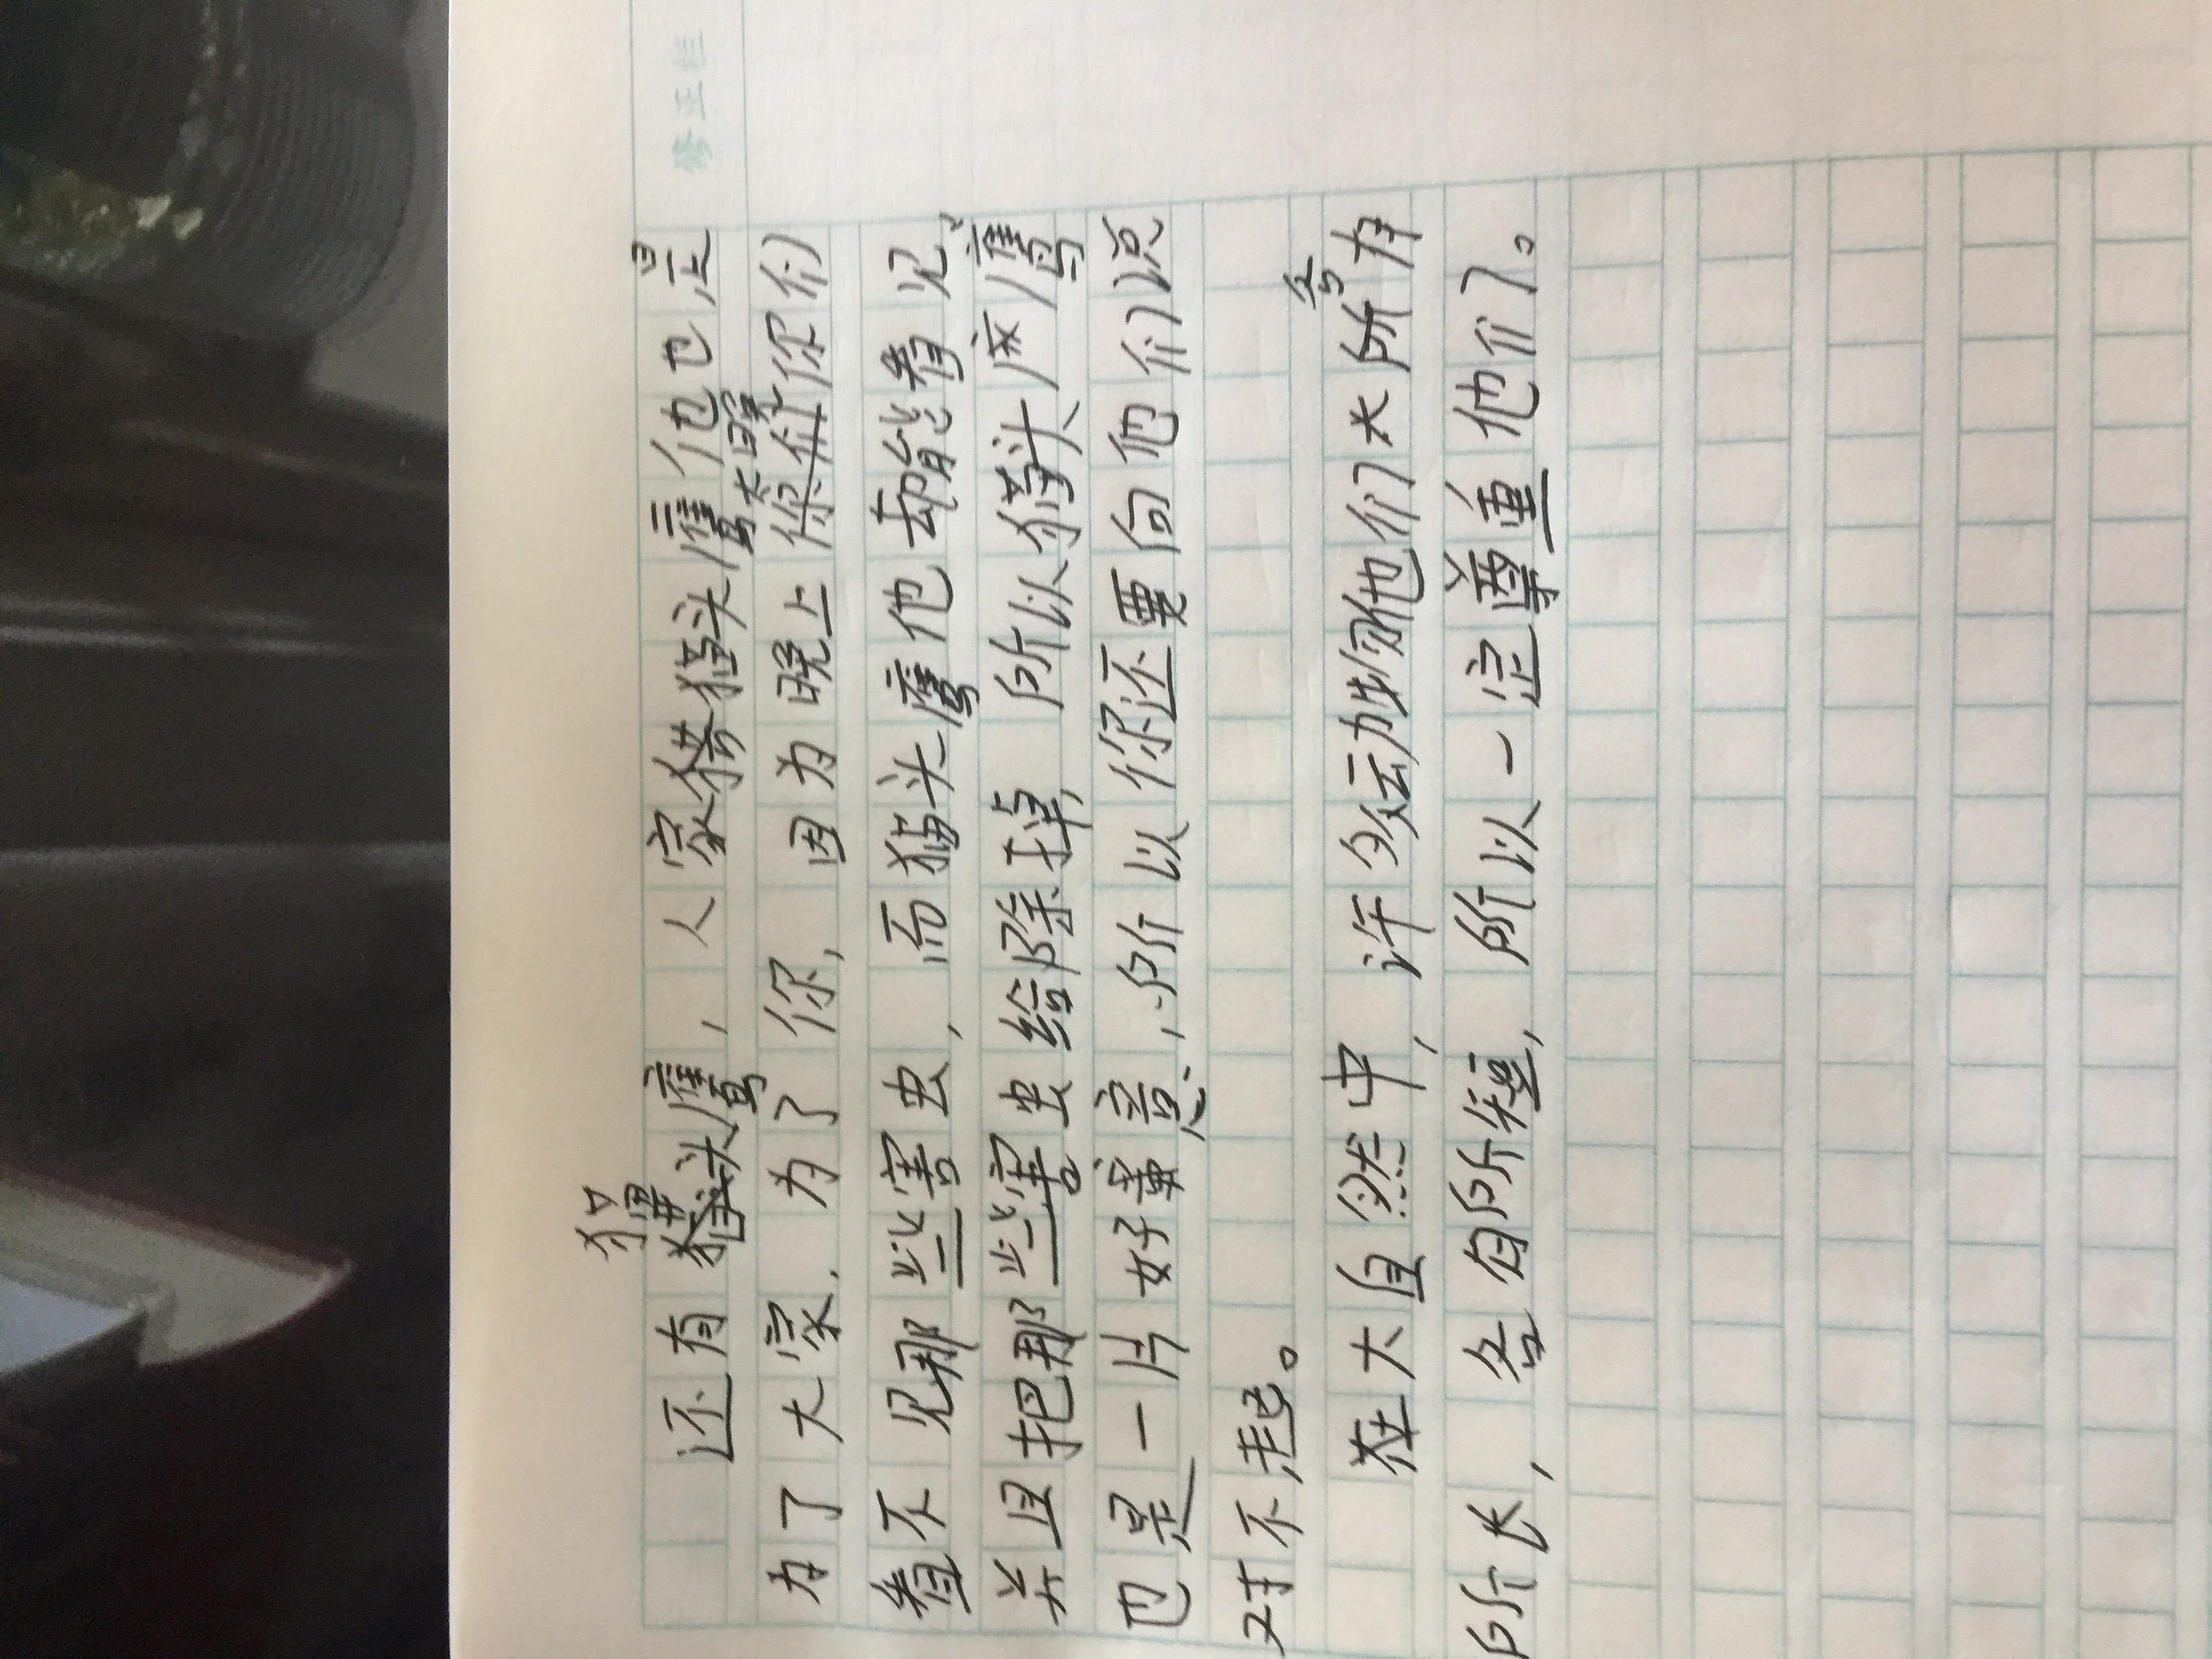 修正栏
还有猫头鹰，人家猫头鹰他也是
为了大家，为了你，因为晚上你们
看不见那些害虫，而猫头鹰他却能看见，
并且把那些害虫给除掉，所以猫头鹰
也是一片好意，所以你还要向他们说
对不起。
在大自然中，许多动物他们各有
所长，各有所短，所以一定尊重他们。